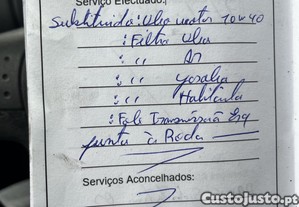 Serviço Efectuado:
Substituida: Oleo motor 10W40
: Filtro Oleo
: '' Ar
: '' Gasolio
: '' Habitáculo
: Fole Transmissão Esq
junto à Roda
Serviços Aconcelhados:
Custojusto.pt